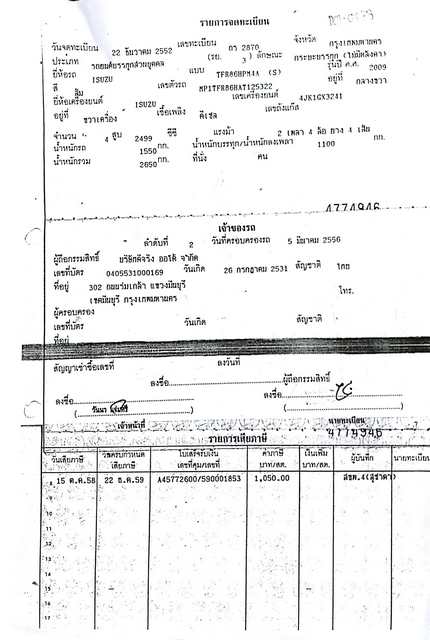 รายการจดทะเบียน
วันจดทะเบียน 22 ธันวาคม 2552 เลขทะเบียน ฎว 2870 จังหวัด กรุงเทพมหานคร
ประเภท รถยนต์บรรทุกส่วนบุคคล (รย. 3) ลักษณะ กระบะบรรทุก (ไม่มีหลังคา)
ยี่ห้อรถ ISUZU แบบ TFR86HPM4A (S) รุ่นปี ค.ศ. 2009
สี ส้ม เลขตัวรถ MP1TFR86HAT125322 อยู่ที่ กลางขวา
ยี่ห้อเครื่องยนต์ ISUZU เลขเครื่องยนต์ 4JK1GX3241
อยู่ที่ ขวาเครื่อง เชื้อเพลิง ดีเซล เลขถังแก๊ส
จำนวน 4 สูบ 2499 ซีซี แรงม้า 2 เพลา 4 ล้อ ยาง 4 เส้น
น้ำหนักรถ 1550 กก. น้ำหนักบรรทุก/น้ำหนักลงเพลา 1100 กก.
น้ำหนักรวม 2650 กก. ที่นั่ง คน
4774946
เจ้าของรถ
ลำดับที่ 2 วันที่ครอบครองรถ 5 มีนาคม 2556
ผู้ถือกรรมสิทธิ์ บริษัทดีจริง ออโต้ จำกัด
เลขที่บัตร 0405531000169 วันเกิด 26 กรกฎาคม 2531 สัญชาติ ไทย
ที่อยู่ 302 ถนนร่มเกล้า แขวงมีนบุรี
เขตมีนบุรี กรุงเทพมหานคร โทร.
ผู้ครอบครอง
เลขที่บัตร วันเกิด สัญชาติ
ที่อยู่
สัญญาเช่าซื้อเลขที่ ลงวันที่
ลงชื่อ ผู้ถือกรรมสิทธิ์
ลงชื่อ ลงชื่อ
เจ้าหน้าที่ นายทะเบียน
4774946
รายการเสียภาษี
วันเสียภาษี วันครบกำหนดเสียภาษี ใบเสร็จรับเงิน เลขที่คุม/เลขที่ ค่าภาษี บาท/สต. เงินเพิ่ม บาท/สต. ผู้บันทึก นายทะเบียน
15 ต.ค.58 22 ธ.ค.59 A45772600/590001853 1,050.00 สขพ.4(สุชาดา)
8
9
10
11
12
13
14
15
16
17